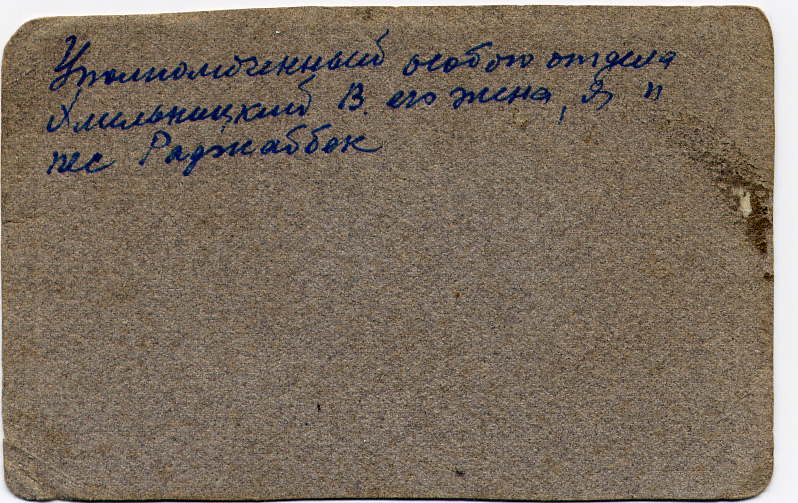 Уполномоченный особого отдела
Хмельницкий В. его жена, Я и
пес Раджаббок